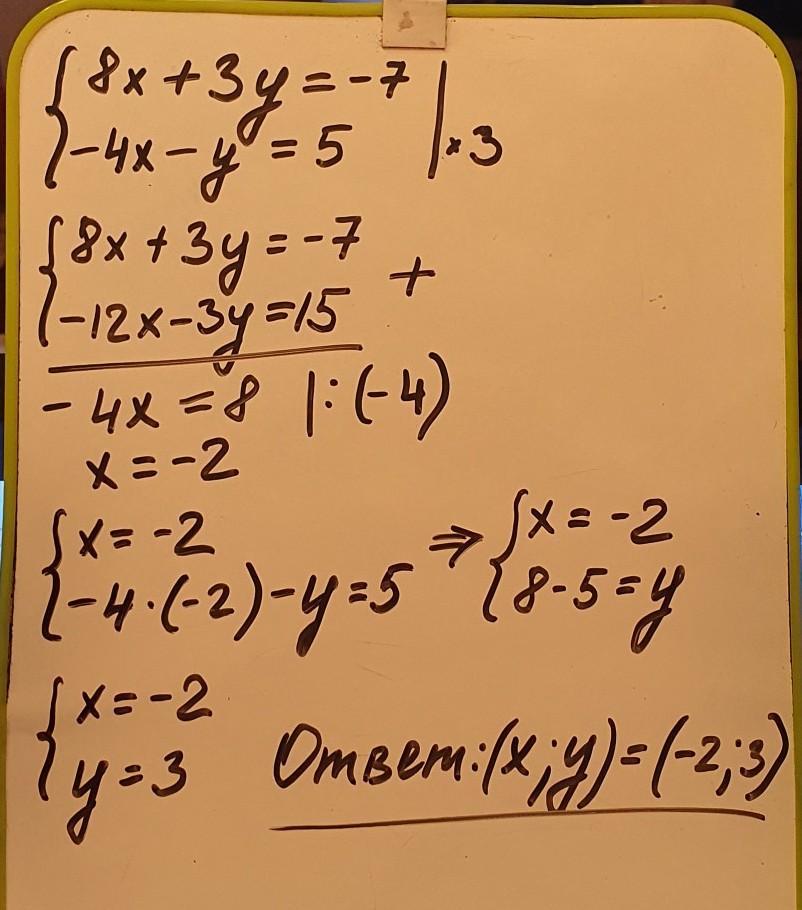 8x + 3y = -7
-4x - y = 5 | × 3
8x + 3y = -7
-12x - 3y = 15 +
-4x = 8 |:(-4)
x = -2
x = -2 ⇒ x = -2
-4·(-2) - y = 5 8 - 5 = y
x = -2
y = 3 Ответ: (x; y) = (-2; 3)